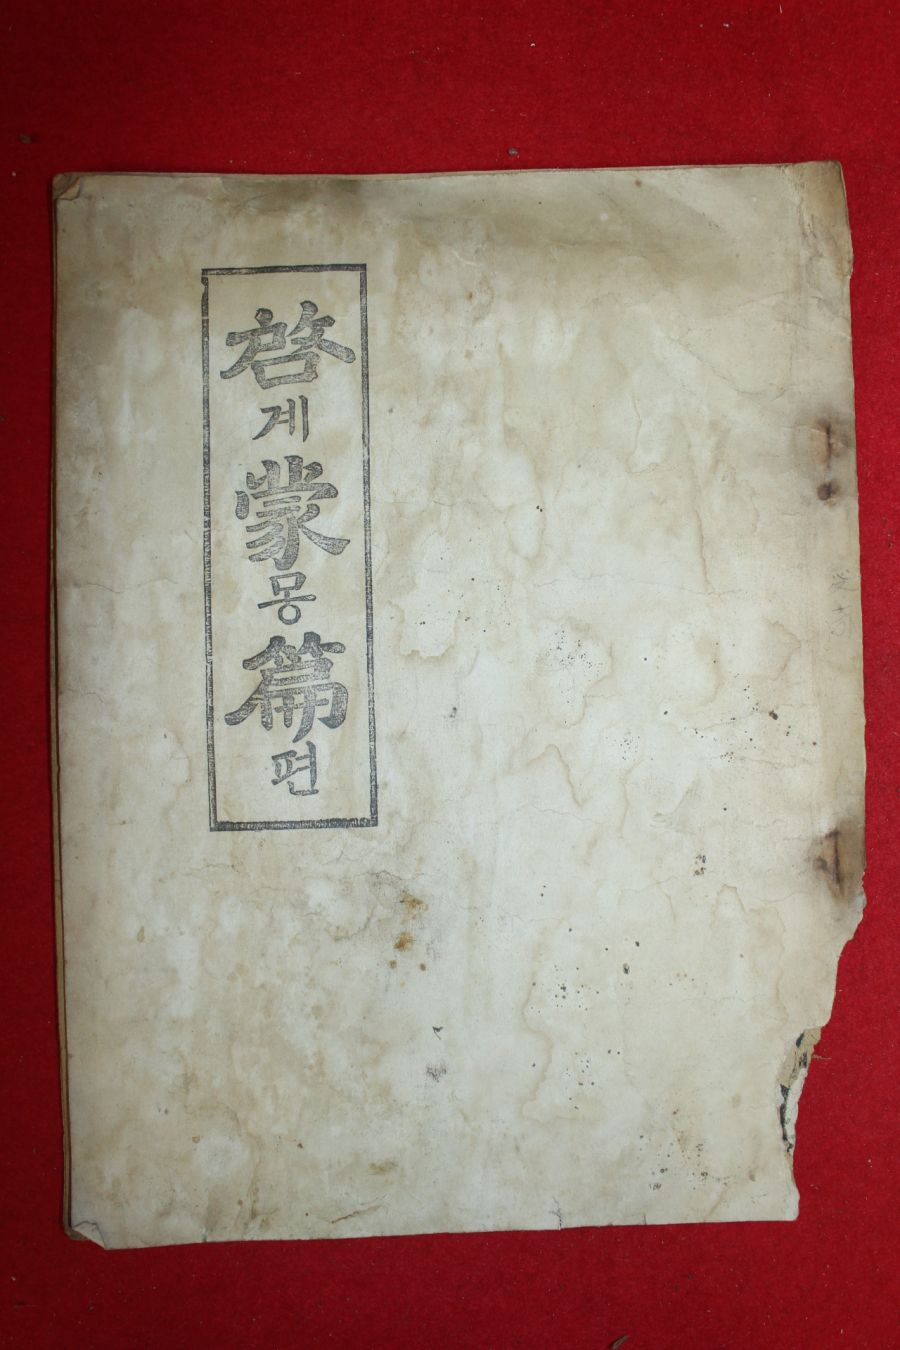 啓계蒙몽篇편